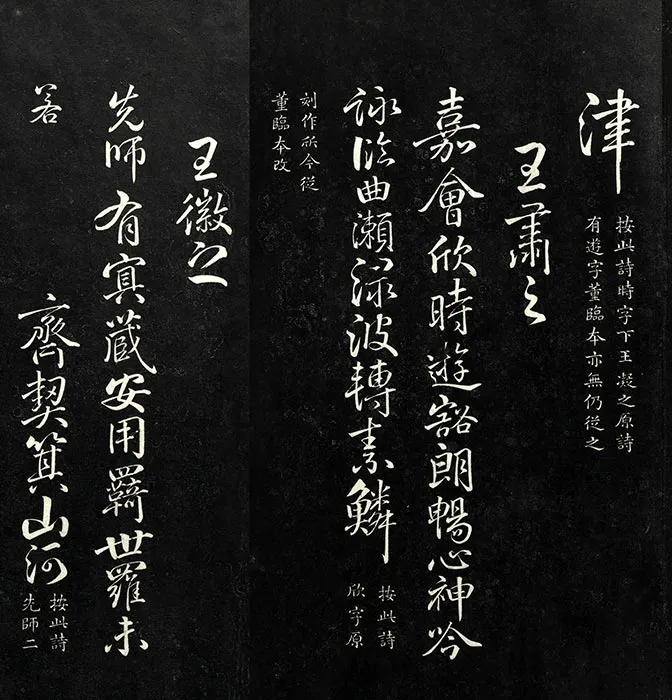 津
按此詩時字下王凝之原詩
有遊字董臨本亦無仍從之
王肅之
嘉會欣時遊豁朗暢心神吟
詠臨曲瀨渌波轉素鱗
按此詩
欣字原
刻作今從
董臨本改
王徽之
先師有冥藏安用羈世羅未
若 齊契箕山阿
按此詩
先師二